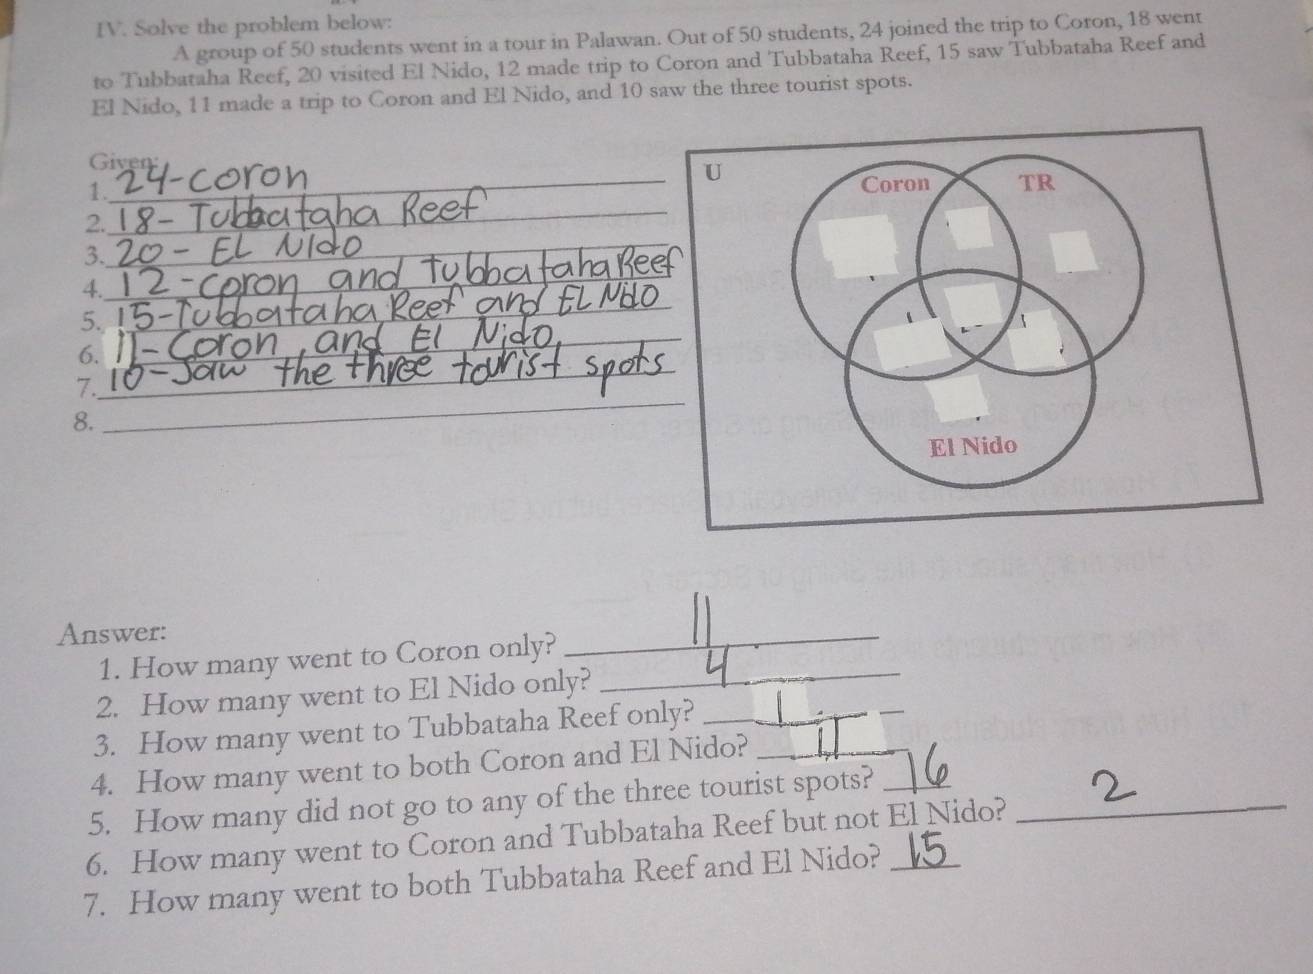 IV. Solve the problem below:
A group of 50 students went in a tour in Palawan. Out of 50 students, 24 joined the trip to Coron, 18 went
to Tubbataha Reef, 20 visited El Nido, 12 made trip to Coron and Tubbataha Reef, 15 saw Tubbataha Reef and
El Nido, 11 made a trip to Coron and El Nido, and 10 saw the three tourist spots.
Given:
1. 24-coron
2. 18- Tubbataha Reef
3. 20 - EL Nido
4. 12-coron and tubbataha Reef
5. 15-Tubbataha Reef and EL Nido
6. 11- Coron, and El Nido
7. 10-Saw the three tourist spots
8.
U
Coron
TR
El Nido
Answer:
1. How many went to Coron only? 11
2. How many went to El Nido only? 4
3. How many went to Tubbataha Reef only? 1
4. How many went to both Coron and El Nido? 11
5. How many did not go to any of the three tourist spots? 16
6. How many went to Coron and Tubbataha Reef but not El Nido? 2
7. How many went to both Tubbataha Reef and El Nido? 15